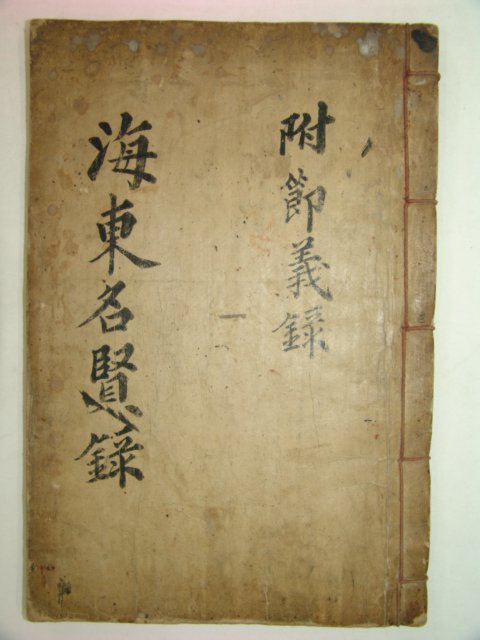 附節義錄
一
海東名賢錄